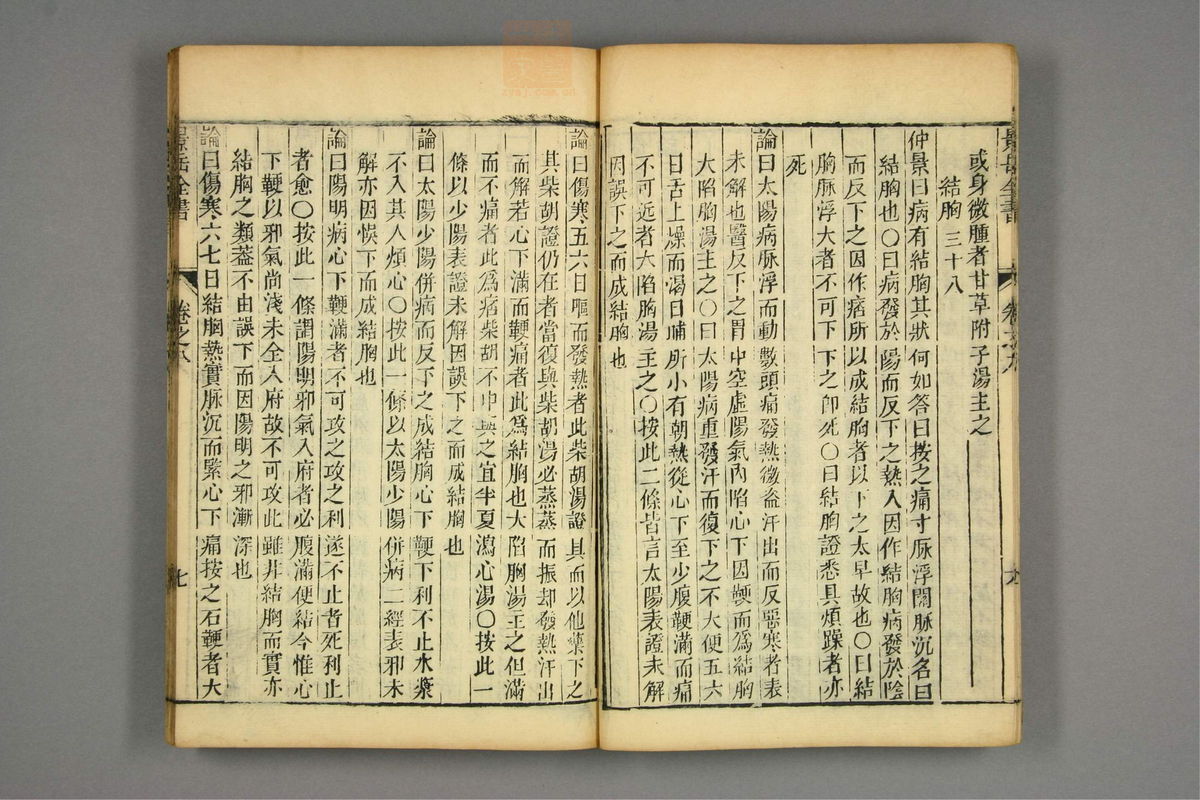 景岳全書
卷之八
或身微腫者甘草附子湯主之
結胸 三十八
仲景曰病有結胸其狀何如答曰按之痛寸脈浮關脈沉名曰
結胸也〇曰病發於陽而反下之熱入因作結胸病發於陰
而反下之因作痞所以成結胸者以下之太早故也〇曰結
胸脈浮大者不可下下之卽死〇曰結胸證悉具煩躁者亦
死
論曰太陽病脈浮而動數頭痛發熱微盜汗出而反惡寒者表
未解也醫反下之胃中空虛陽氣內陷心下因鞕而爲結胸
大陷胸湯主之〇曰太陽病重發汗而復下之不大便五六
日舌上燥而渴日晡所小有朝熱從心下至少腹鞕滿而痛
不可近者大陷胸湯主之〇按此二條皆言太陽表證未解
因誤下之而成結胸也
論曰傷寒五六日嘔而發熱者此柴胡湯證具而以他藥下之
其柴胡證仍在者當復與柴胡湯必蒸蒸而振却發熱汗出
而解若心下滿而鞕痛者此爲結胸也大陷胸湯主之但滿
而不痛者此爲痞柴胡不中與之宜半夏瀉心湯〇按此一
條以少陽表證未解因誤下之而成結胸也
論曰太陽少陽併病而反下之成結胸心下鞕下利不止水漿
不入其人煩心〇按此一條以太陽少陽併病二經表邪未
解亦因悞下而成結胸也
論曰陽明病心下鞕滿者不可攻之攻之利遂不止者死利止
者愈〇按此一條謂陽明邪氣入府者必腹滿便結今惟心
下鞕以邪氣尚淺未全入府故不可攻此雖非結胸而實亦
結胸之類葢不由誤下而因陽明之邪漸深也
論曰傷寒六七日結胸熱實脈沉而緊心下痛按之石鞕者大
景岳全書
卷之八
七